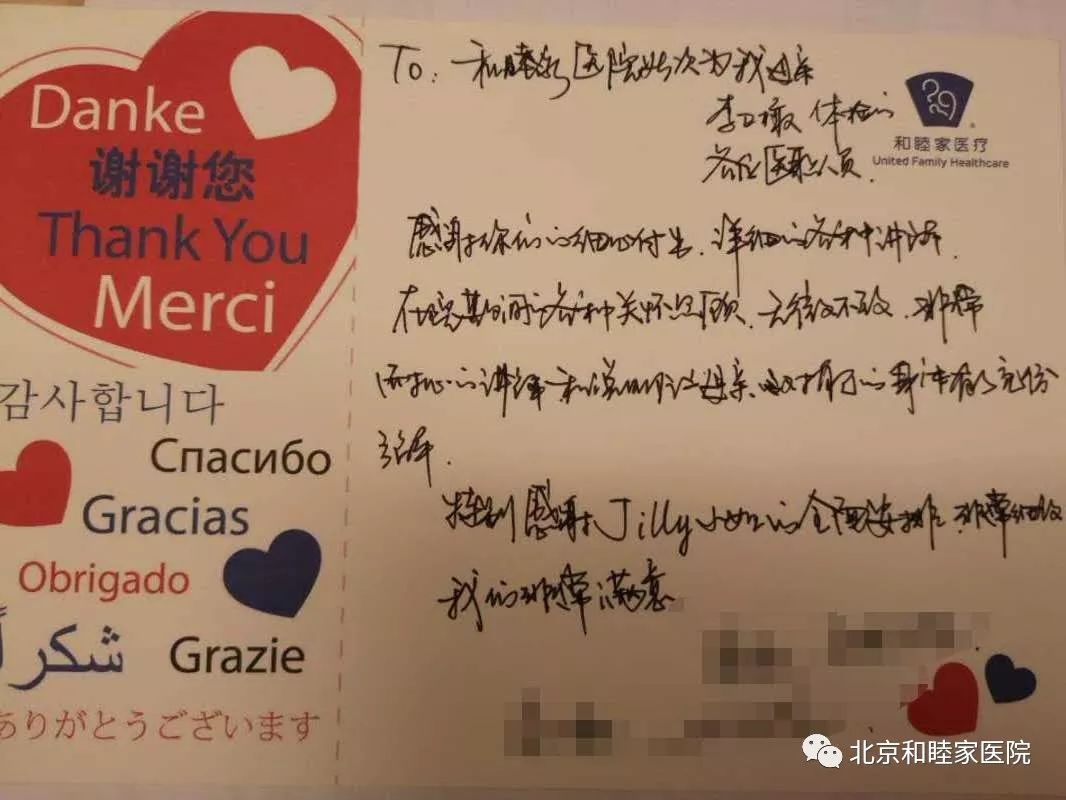 Danke
谢谢您
Thank You
Merci
감사합니다
Спасибо
Gracias
Obrigado
شكراً
Grazie
ありがとうございます
To: 和睦家医院此次为我母亲
李卫敏 体检的
各位医职人员.
和睦家医疗
United Family Healthcare
感谢你们的细心付出、详细的各种讲解.
在院期间的各种关怀照顾、无微不致、非常
耐心的讲解和说明让母亲、对自己的身体有了充份
了解.
特别感谢Jilly小姐的全面安排、非常细致
我们非常满意
北京和睦家医院